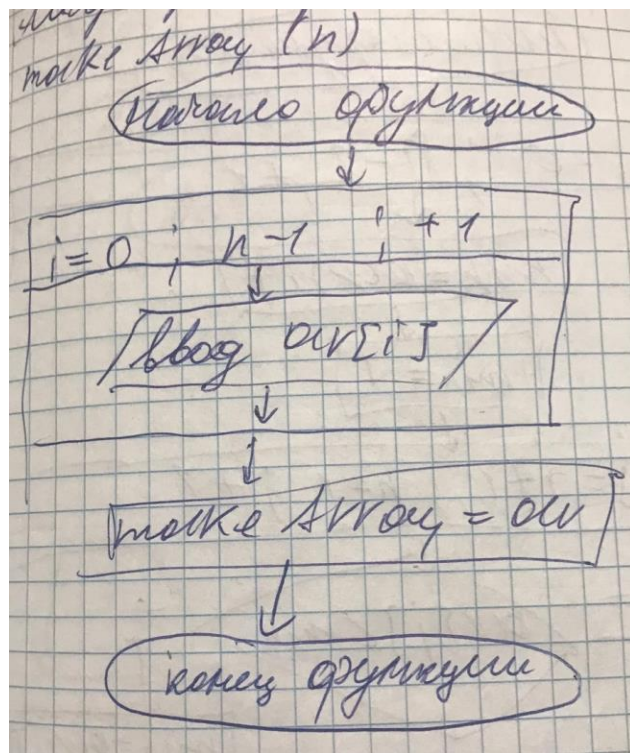 make Array (n)
Начало функции
i = 0 ; n - 1 ; + 1
ввод arr[i]
make Array = arr
конец функции